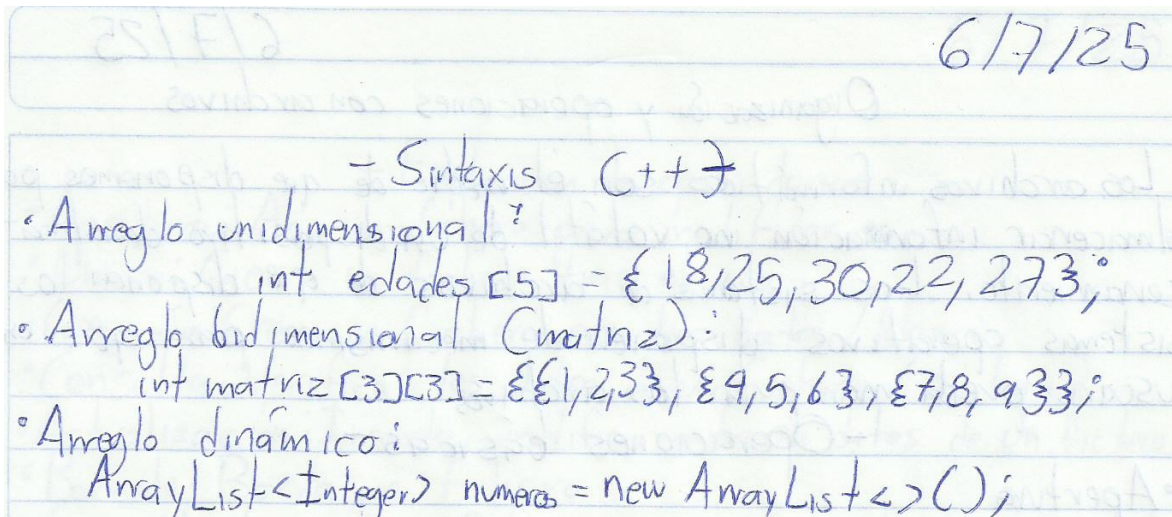 6/7/25
- Sintaxis C++ -
• Arreglo unidimensional:
int edades [5] = {18,25,30,22,27};
• Arreglo bidimensional (matriz):
int matriz [3][3] = {{1,2,3}, {4,5,6}, {7,8,9}};
• Arreglo dinámico:
ArrayList<Integer> numeros = new ArrayList<>();